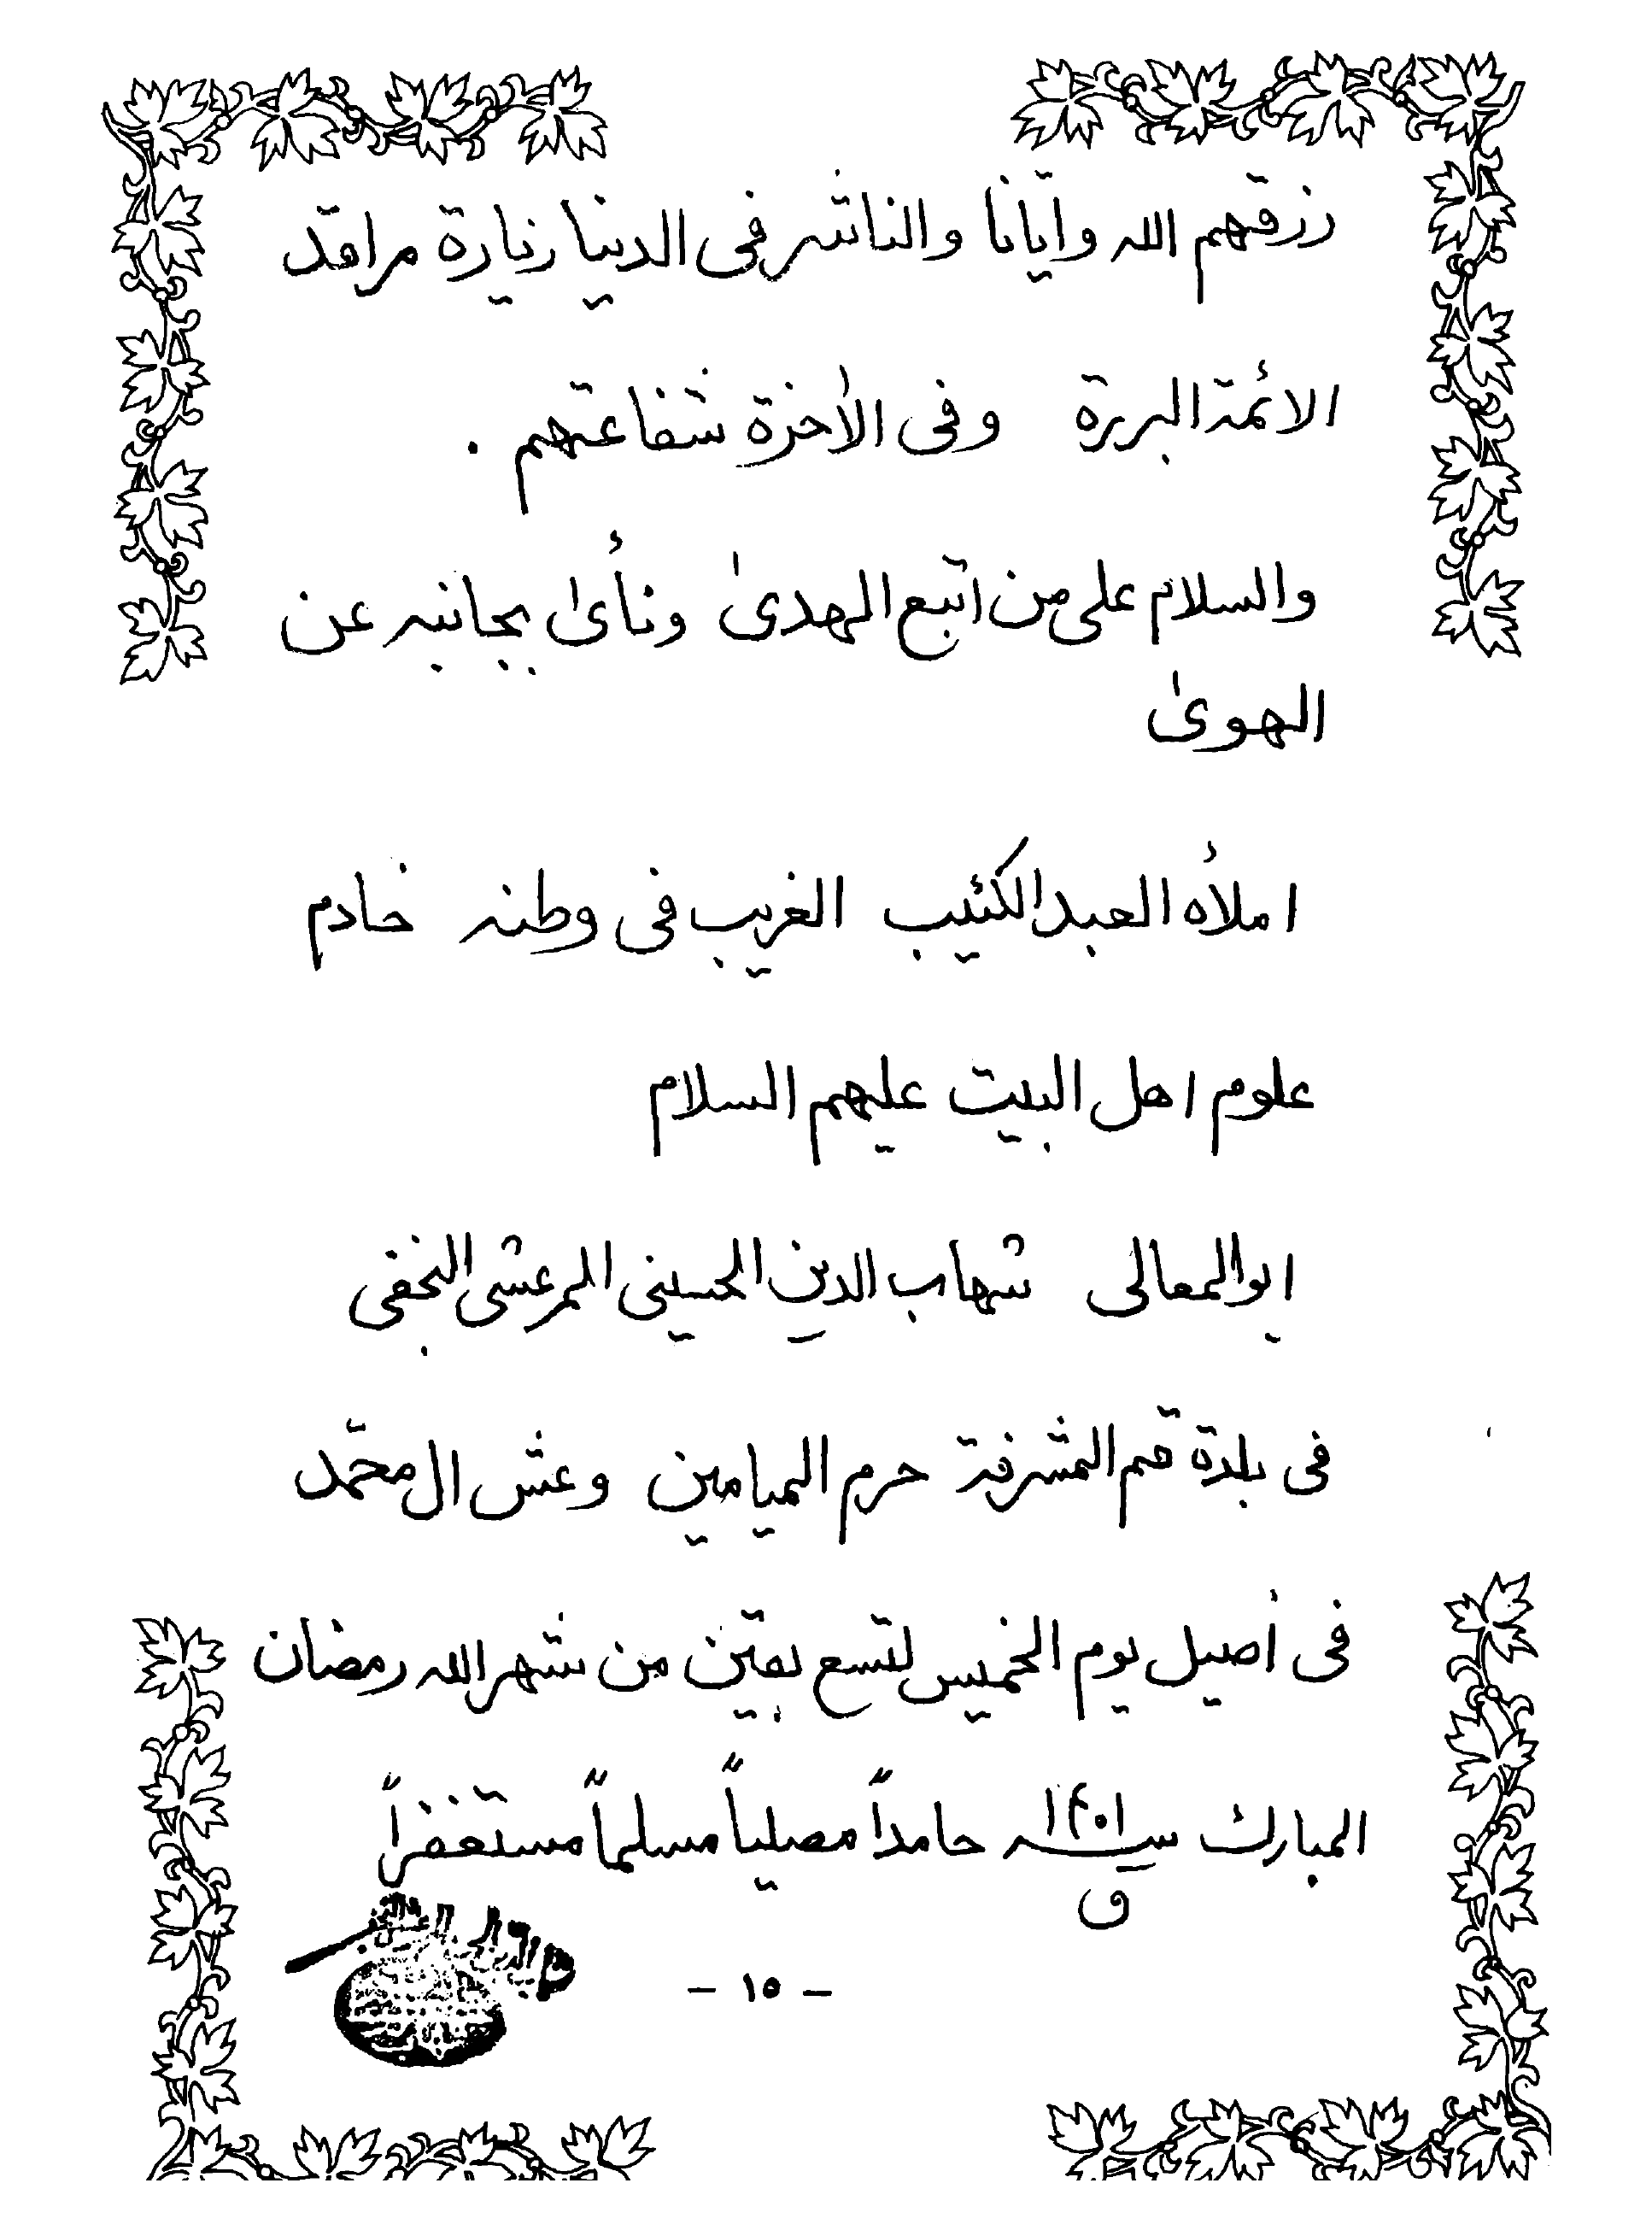 رزقهم الله وايّانا والناشر فى الدنيا زيارة مراقد
الائمة البررة وفى الاٰخرة شفاعتهم .
والسلام على من اتبع الهدىٰ ونأىٰ بجانبه عن
الهوىٰ
املأه العبد الكئيب الغريب فى وطنه خادم
علوم اهل البيت عليهم السلام
ابوالمعالى شهاب الدين الحسينى المرعشى النجفى
فى بلدة قم المشرفة حرم الميامين وعش ال محمّد
فى أصيل يوم الخميس لتسع بقين من شهر الله رمضان
المبارك سنه ١٤٠١ ق حامداً مصلياً مسلماً مستغفراً
- ١٥ -